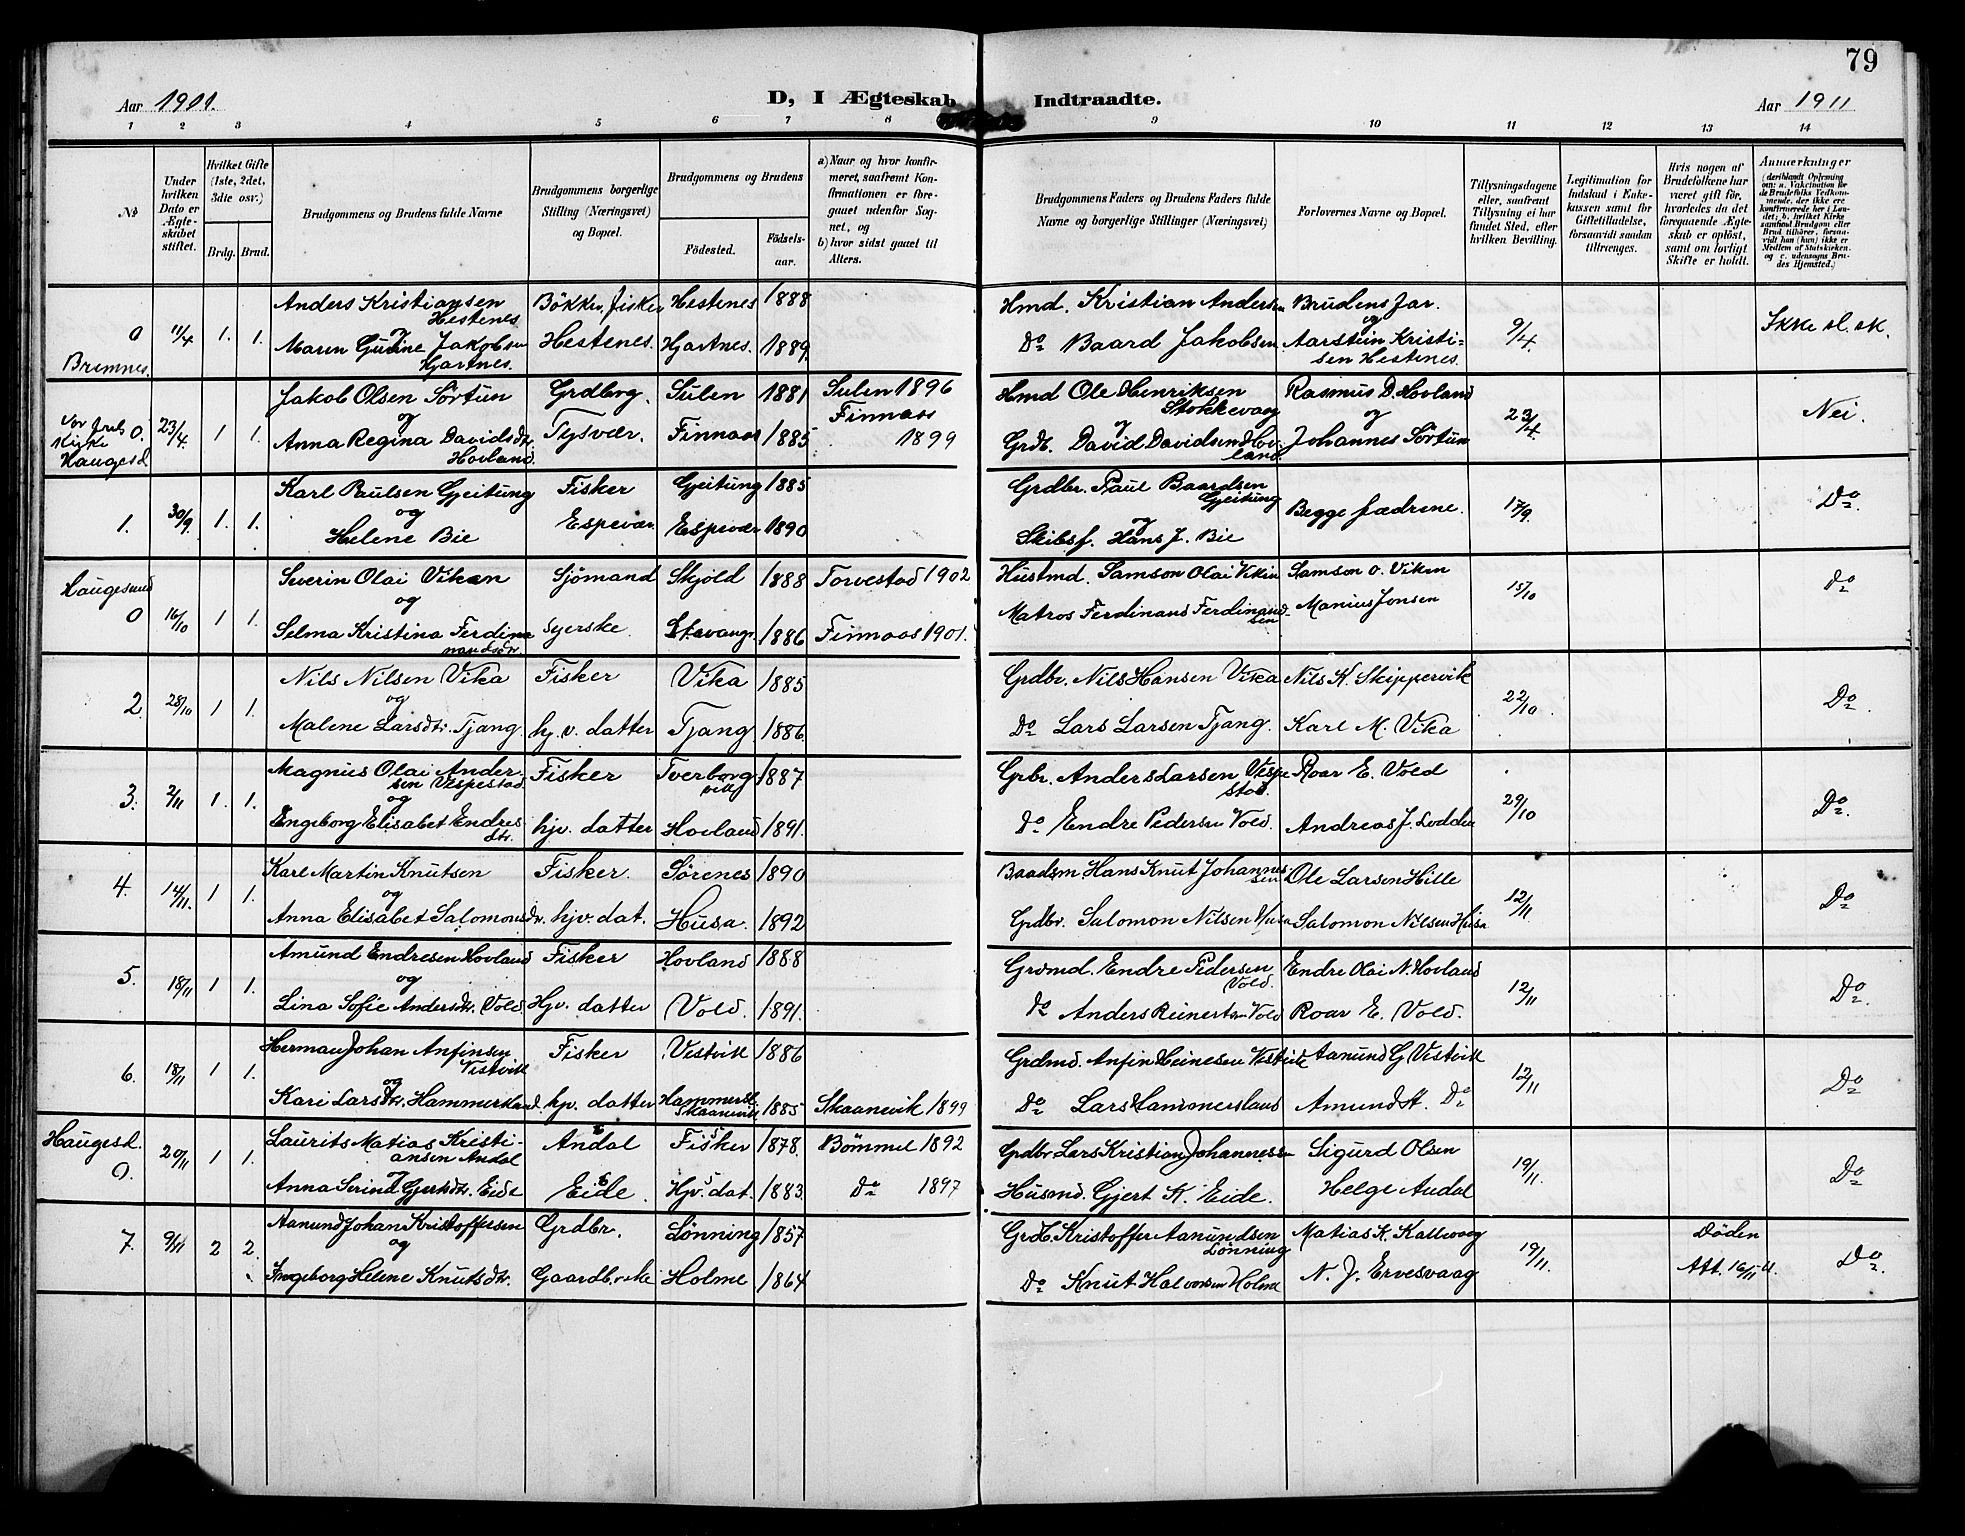 79
Aar 1901.
D, I Ægteskab Indtraadte.
Aar 1911
1 2 3 4 5 6 7 8 9 10 11 12 13 14
No
Under hvilken Dato er Ægteskabet stiftet.
Hvilket Gifte (1ste, 2det, 3die osv.)
Brdg. Brud.
Brudgommens og Brudens fulde Navne
Brudgommens borgerlige Stilling (Næringsvei) og Bopæl.
Brudgommens og Brudens
Fødested.
Fødselsaar.
a) Naar og hvor konfirmeret, saafremt Konfirmationen er foregaaet udenfor Sognet, og
b) hvor sidst gaaet til Alters.
Brudgommens Faders og Brudens Faders fulde Navne og borgerlige Stillinger (Næringsvei)
Forlovernes Navne og Bopæl.
Tillysningsdagene eller, saafremt Tillysning ei har fundet Sted, efter hvilken Bevilling.
Legitimation for Indskud i Enkekassen samt for Giftetilladelse, forsaavidt saadan tiltrænges.
Hvis nogen af Brudefolkene har været gift før, hvorledes da det foregaaende Ægteskab er opløst, samt om lovligt Skifte er holdt.
Anmærkninger
(deriblandt Oplysning om: a. Vakcination for de Brudefolks Vedkommende, der ikke ere konfirmerede her i Landet; b. hvilket Kirkesamfund Brudgom eller Brud tilhører, forsaavidt han (hun) ikke er Medlem af Statskirken, og c. udensogns Brudes Hjemsted.)
0 11/4 1. 1. Anders Kristiansen Hestenes Bökker, fisker Hestenes 1888 Hmd. Kristian Andersen Brudens far.
og og 9/4 Ikke sl. sk.
Bremnes. Maren Gurine Jakobsen Hjartnes. Hestenes. Hjartnes. 1889 Do Baard Jakobsen Aarstein Kristisen Hestenes.
Vor frels Kirke Haugesd. 0. 23/4 1 1. Jakob Olsen Sörtun Grdbrg. Sulen 1881 Sulen 1896 Hmd Ole Henriksen Stokkevaag Rasmus D. Hovland
og og og 23/4. Nei.
Anna Regina Davidsdtr. Hovland. Tysvær. Finnaas 1885 Finnaas 1899 Grdb. David Davidsen Hovland. Johannes Sörtun
1. 30/9. 1. 1. Karl Paulsen Gjeitung Fisker Gjeitung 1885 Grdbr. Paul Baardsen Gjeitung Begge fædrene. 17/9. Do
og og
Helene Bie Espevær. Espevær 1890 Skibsf. Hans J. Bie
Haugesund 0 16/10 1 1 Severin Olai Viken Sjömand Skjold 1888 Torvestad 1902 Hustmd. Samson Olai Viken Samson O. Viken 15/10 Do
og
Selma Kristina Ferdinandsdtr. Syerske. Stavangr. 1886 Finnaas 1901. Matros Ferdinans Ferdinandsen Manius Jonsen
2. 28/10 1 1. Nils Nilsen Vika Fisker Vika 1885 Grdbr. Nils Hansen Vika Nils K. Skippervik 22/10 Do
og
Malene Larsdtr. Tjang. hj. v. datter Tjang. 1886. Do Lars Larsen Tjang. Karl M. Vika
3. 2/11 1. 1. Magnus Olai Andersen Vespestad. Fisker Tverborgvik 1887 Grbr. Anders Larsen Vespestad. Roar E. Vold 29/10 Do.
og
Engeborg Elisabet Endresdtr. hjv. datter Hovland 1891. Do Endre Pedersen Vold. Andreas J. Lodden
4. 14/11. 1 1. Karl Martin Knutsen Fisker. Sørenes 1890 Baadsm Hans Knut Johannessen Ole Larsen Hille 12/11 Do
og
Anna Elisabet Salomonsdtr. hjv. dat. Husa. 1892 Grdbr. Salomon Nilsen Husa Salomon Nilsen Husa
5. 18/11 1 1. Amund Endresen Hovland Fisker Hovland 1888 Grdmd. Endre Pedersen Vold. Endre Olai N. Hovland 12/11 Do.
og
Lina Sofie Andersdtr. Vold. Hjv. datter Vold. 1891. Do Anders Reinertsen Vold Roar E. Vold.
6. 18/11 1 1. Herman Johan Anfinsen Vestvik Fisker Vestvik 1886 Grdmd. Anfin Heinesen Vestvik Aanund G Vestvik 12/11 Do
og
Kari Larsdtr. Hammerland. hjv. datter Hammersl. Skaanevik 1885 Skaanevik 1899 Do Lars Hammersland Amund A. Do
Haugesd. 0. 20/11 1 1. Laurits Matias Kristiansen Andal Andal Fisker 1878. Bömmel 1892 Grdbr Lars Kristian Johannessen Sigurd Olsen 19/11. Do
og
Anna Serina Gjertsdtr. Eide Eide. Hjv. dat. 1883. Do 1897 Husmd. Gjert K. Eide. Helge Andal
7. 9/11 2 2. Aanund Johan Kristoffersen Grdbr. Lönning 1857 Grdb. Kristoffer Aanundsen Lönning Matias K. Kallevaag 19/11. Döden Do.
og
Ingeborg Helene Knutsdtr. Gaardb.v.ke Holme 1864 Do Knut Halvorsen Holme N. J. Ervesvaag Att. 16/11 11.